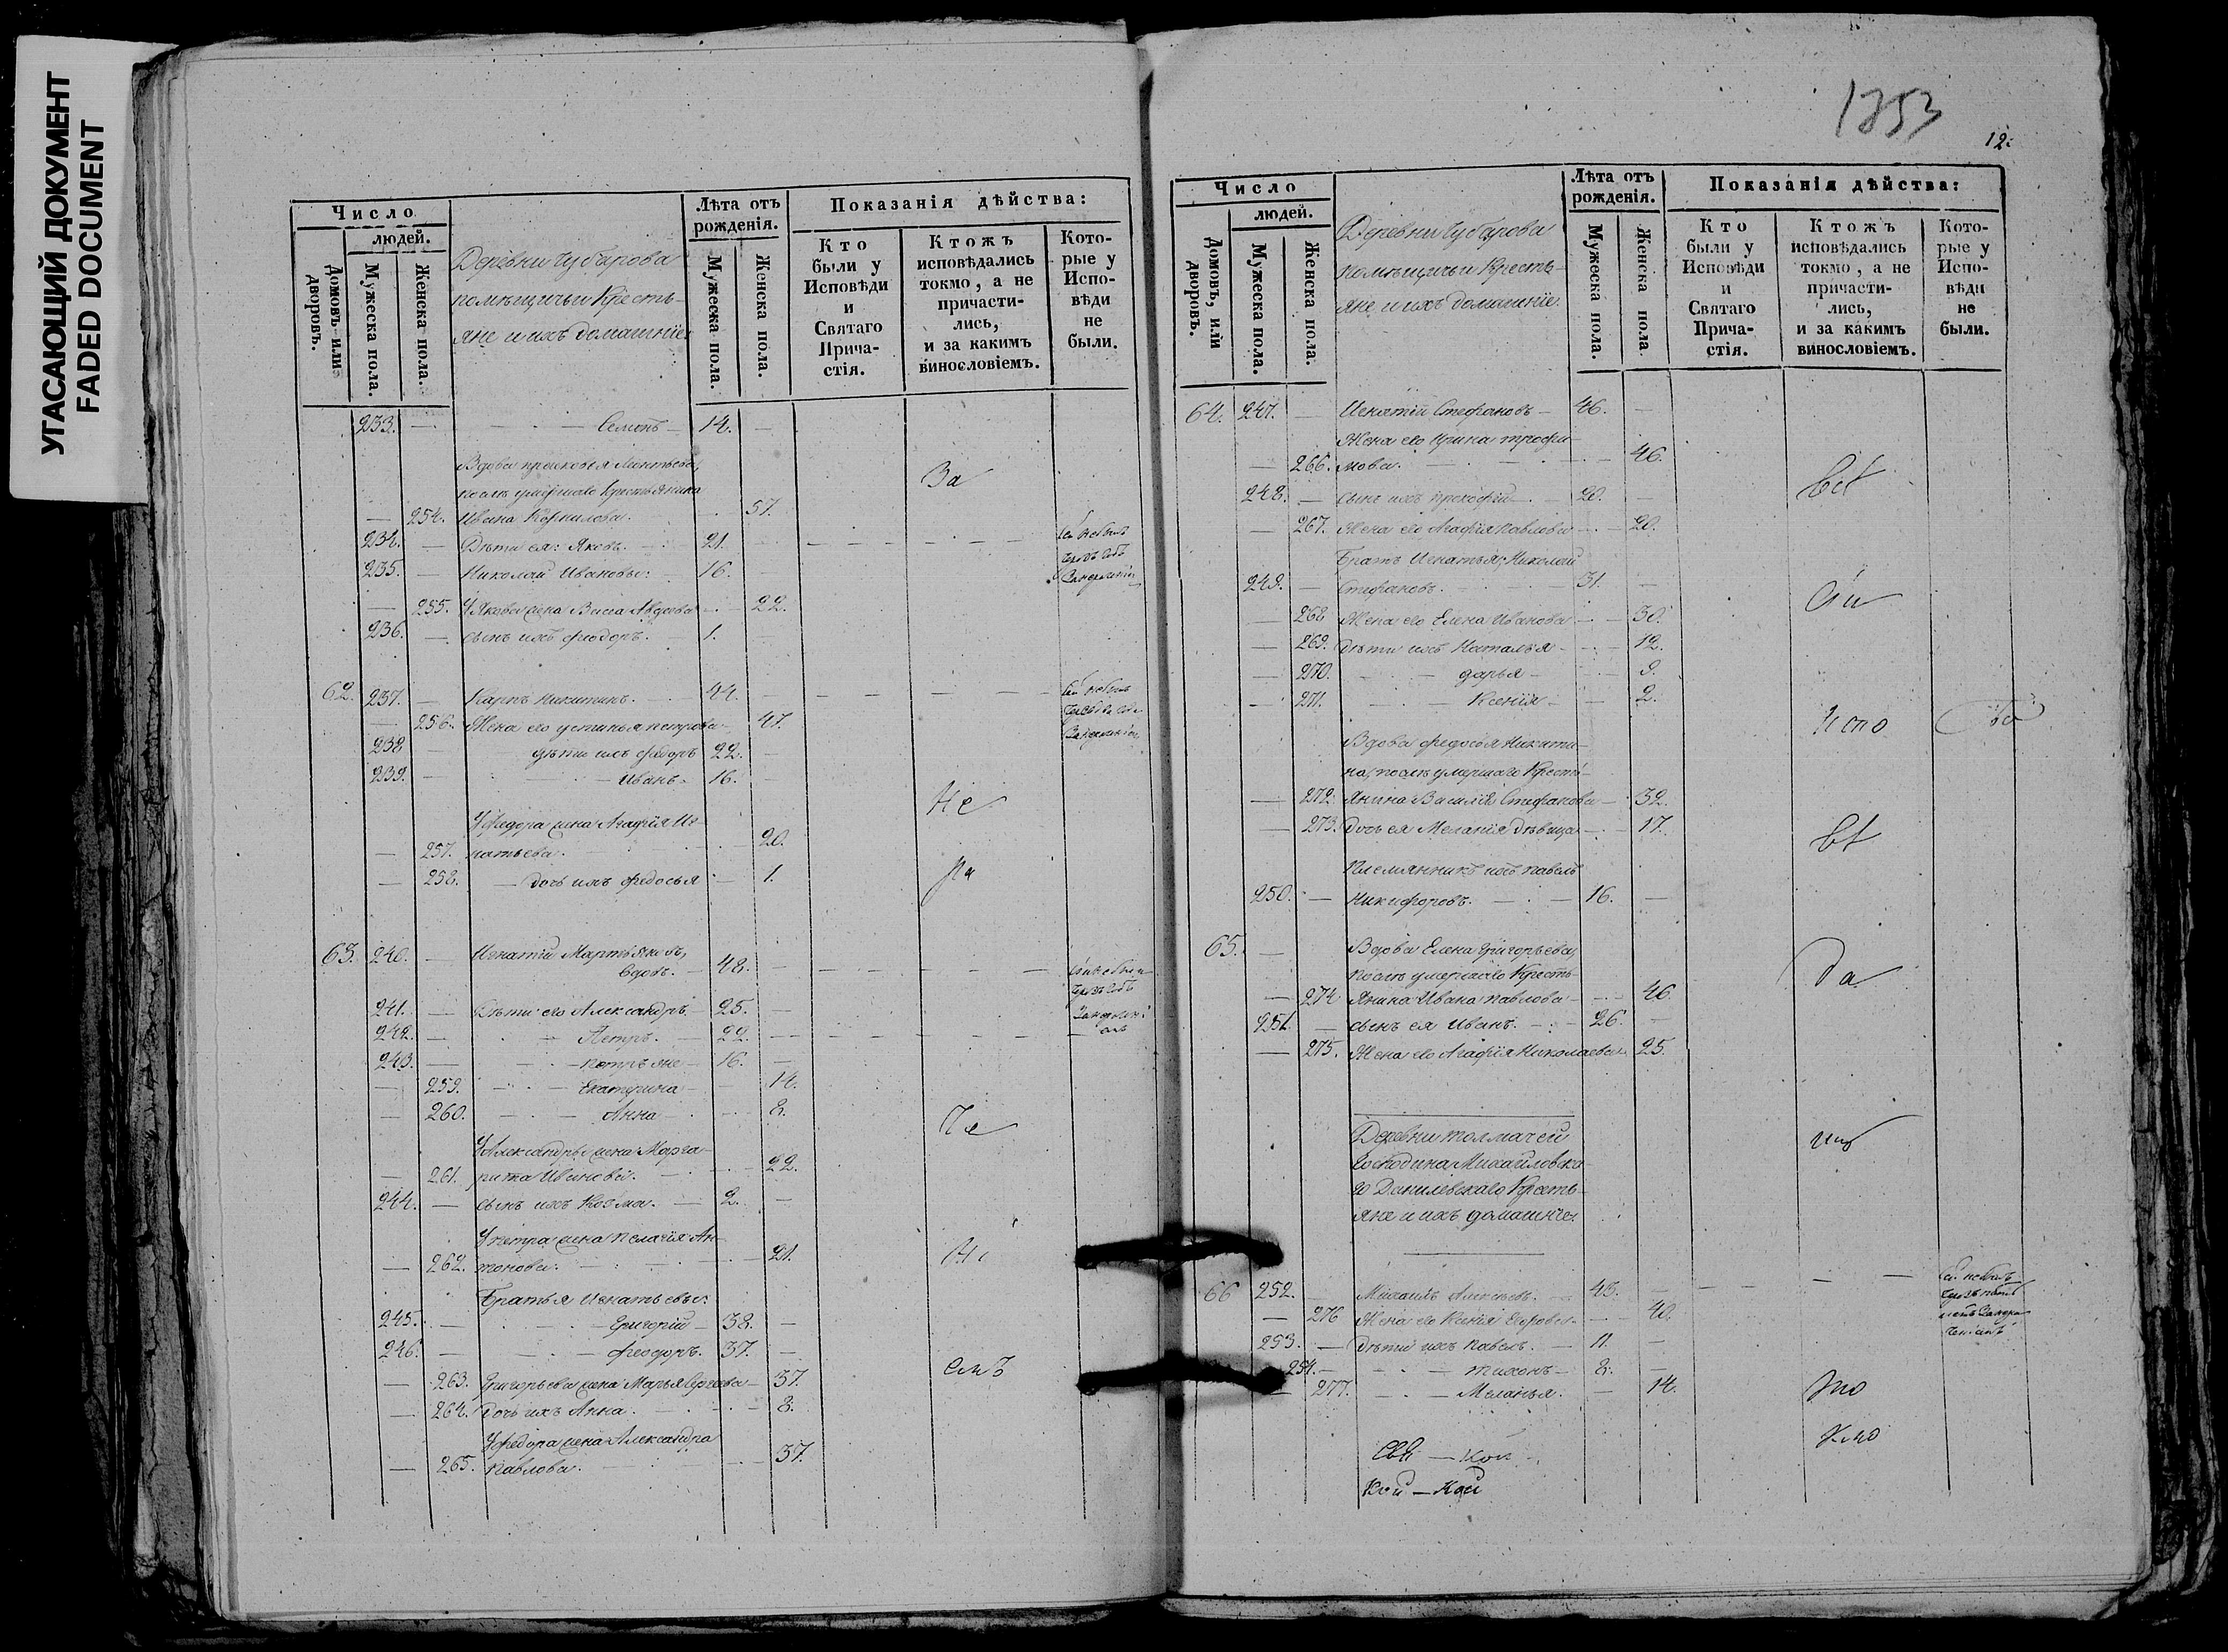 УГАСАЮЩИЙ ДОКУМЕНТ
FADED DOCUMENT
Число
людей.
Домовъ или дворовъ.
Мужеска пола.
Женска пола.
Деревни Чубарова
помѣщичьи Кресть-
яне и ихъ домашніе.
Лѣта отъ рожденія.
Мужеска пола.
Женска пола.
Показанія дѣйства:
Кто были у Исповѣди и Святаго Прича-стія.
Ктожъ исповѣдались токмо, а не причасти-лись, и за какимъ винословіемъ.
Кото-рые у Испо-вѣди не были.
233. — Семенъ — 14. —
Вдова Прасковья Леонтьева,
послѣ умершаго Крестьянина
— 254. Ивана Корнилова. 57.
За
234. — Дѣти ея: Яковъ. 21.
235. — Николай Ивановы: 16.
— 255. У Якова жена Васса Авдеева 22.
236. — сынъ ихъ Феодоръ. 1.
62. 237. — Карпъ Никитинъ. 44.
— 256. Жена его Устинья Петрова 47.
238 дѣти ихъ Федоръ 22. —
239. — Иванъ 16. —
Не
У Федора жена Агафія Иг-
— 257. натьева. 20.
— 258. — дочь ихъ Федосья — 1.
ра
63. 240. — Игнатій Мартьяновъ,
вдовъ. 48.
241. — Дѣти его Александръ 25. —
242. — Петръ. 22.
243. — Петръ же 16. —
— 259. Екатерина 14.
— 260. Анна 8.
У Александра жена Марга-
— 261. рита Иванова. 22.
244. — сынъ ихъ Козма. 2. —
У Петра жена Пелагія Ан-
— 262. тонова. 21.
Братья Игнатьевы:
245. — Григорій 38. —
246. — Феодоръ. 37. —
— 263. Григорьева жена Марья Сергеева 37.
— 264. Дочь ихъ Анна. 8.
У Федора жена Александра
— 265. Павлова. 37.
емъ
1253
12.
Число
людей.
Домовъ, или дворовъ.
Мужеска пола.
Женска пола.
Деревни Чубарова
помѣщичьи Кресть-
яне и ихъ домашніе.
Лѣта отъ рожденія.
Мужеска пола.
Женска пола.
Показанія дѣйства:
Кто были у Исповѣди и Святаго Прича-стія.
Ктожъ исповѣдались токмо, а не причасти-лись, и за какимъ винословіемъ.
Кото-рые у Испо-вѣди не были.
64. 247. — Игнатій Стефановъ 46. —
Жена его Ирина Трофи-
— 266. мова. 46.
248. — сынъ ихъ Прокофій 20. —
— 267. Жена его Агафія Павлова 20.
Братъ Игнатья, Николай
249. — Стефановъ. 31. —
— 268 Жена его Елена Иванова 30.
— 269. дѣти ихъ Наталья 12.
— 270. Дарья 9.
— 271. Ксенія 2.
Испо
Вдова Федосья Никити-
на, послѣ умершаго Кресть-
— 272. янина Василія Стефанова 32.
— 273. дочь ея Меланія дѣвица 17.
Племянникъ ихъ Павелъ
250. — Никифоровъ. 16. —
65. — Вдова Елена Григорьева,
послѣ умершаго Кресть-
— 274 янина Ивана Павлова 46.
да
251. — сынъ ея Иванъ. 26. —
— 275. Жена его Агафія Николаева 25.
Деревни Толмачей
Господина Михайловска-
го Данилевскаго Кресть-
яне и ихъ домашніе.
66 252. Михаилъ Алексѣевъ. 43.
— 276 Жена его Ксенія Егорова. 40.
253. — Дѣти ихъ Павелъ. 11. —
254. — Тихонъ 8. —
— 277. Меланья. — 14.